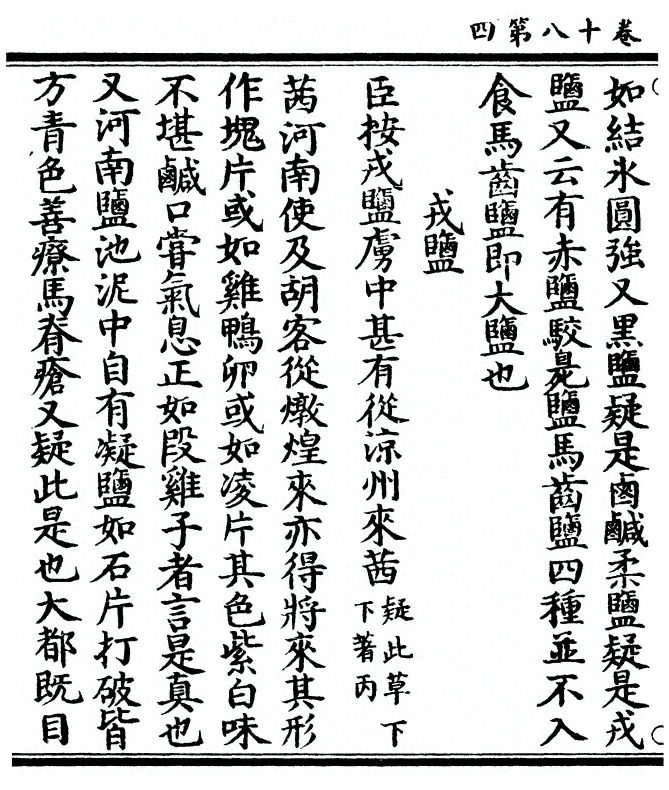 卷十八第四
如結氷圓強又黑鹽疑是鹵鹹柔鹽疑是戎
鹽又云有赤鹽駮臰鹽馬齒鹽四種並不入
食馬齒鹽即大鹽也
戎鹽
臣按戎鹽虜中甚有從涼州來茜疑此草下下著丙
茜河南使及胡客從燉煌來亦得將來其形
作塊片或如雞鴨卵或如凌片其色紫白味
不堪鹹口嘗氣息正如段雞子者言是真也
又河南鹽池泥中自有凝鹽如石片打破皆
方青色善療馬脊瘡又疑此是也大都既目